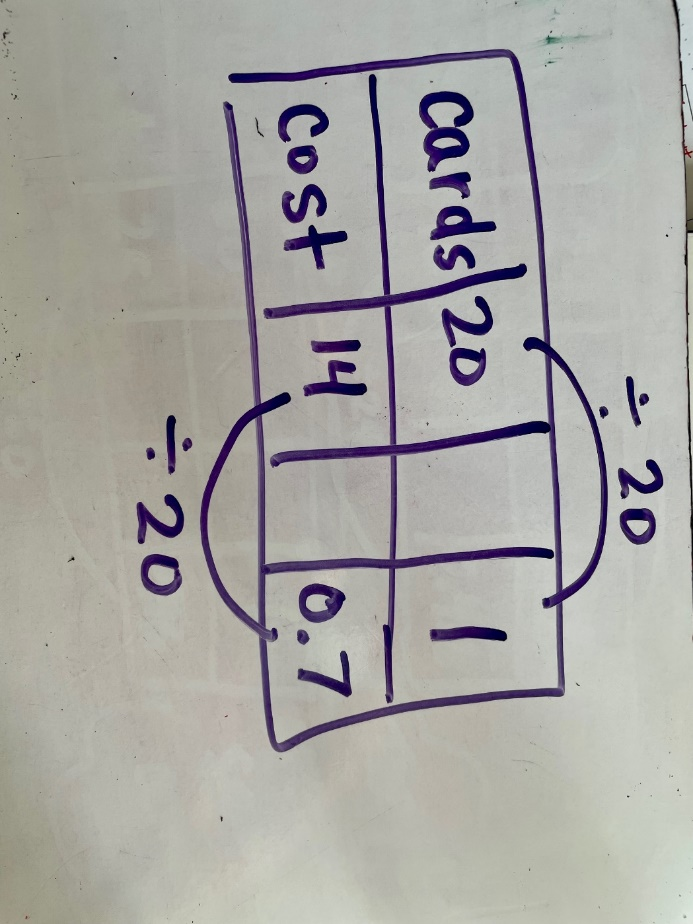 ÷ 20
Cards 20 1
Cost 14 0.7
÷ 20